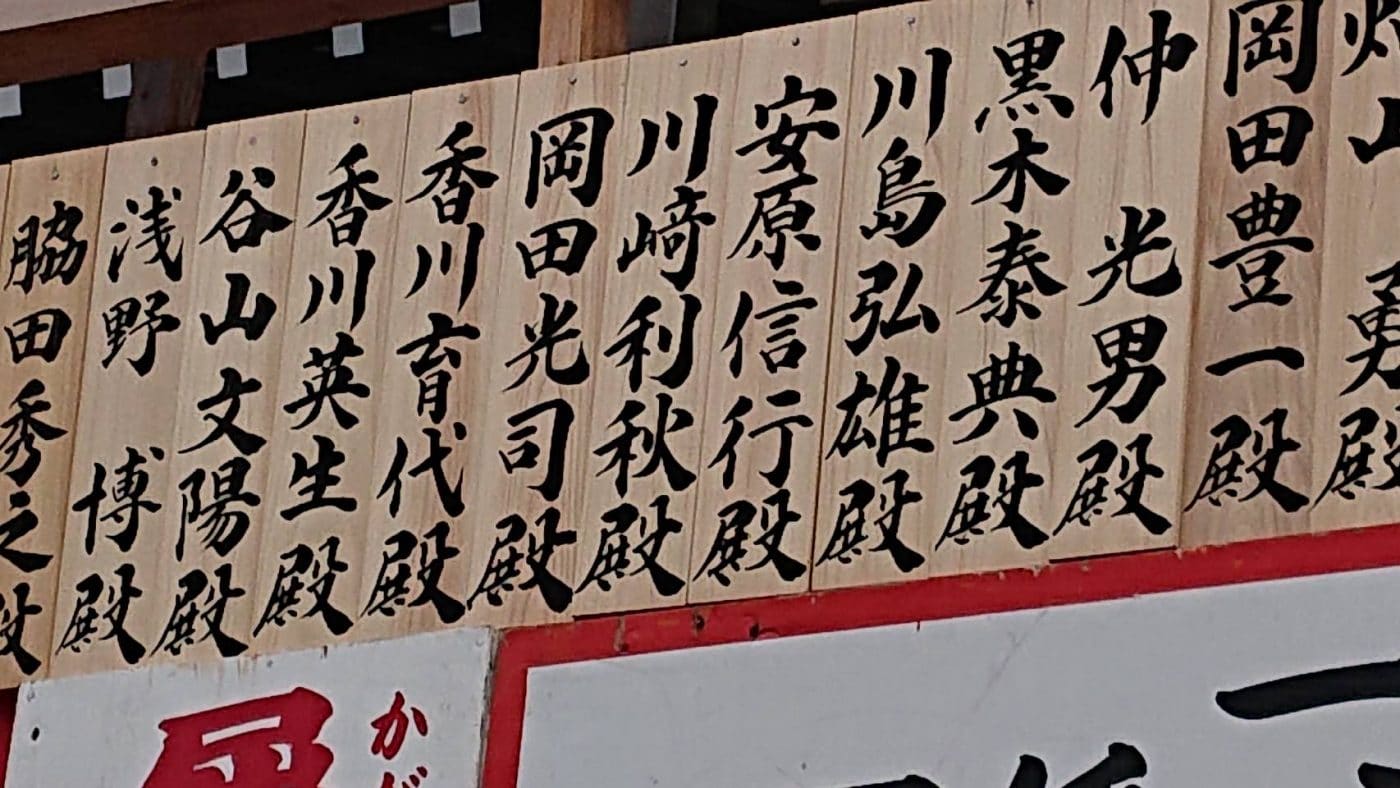 山 勇殿
岡田豊一殿
仲 光男殿
黒木泰典殿
川島弘雄殿
安原信行殿
川﨑利秋殿
岡田光司殿
香川育代殿
香川英生殿
谷山文陽殿
浅野 博殿
脇田秀之殿
か